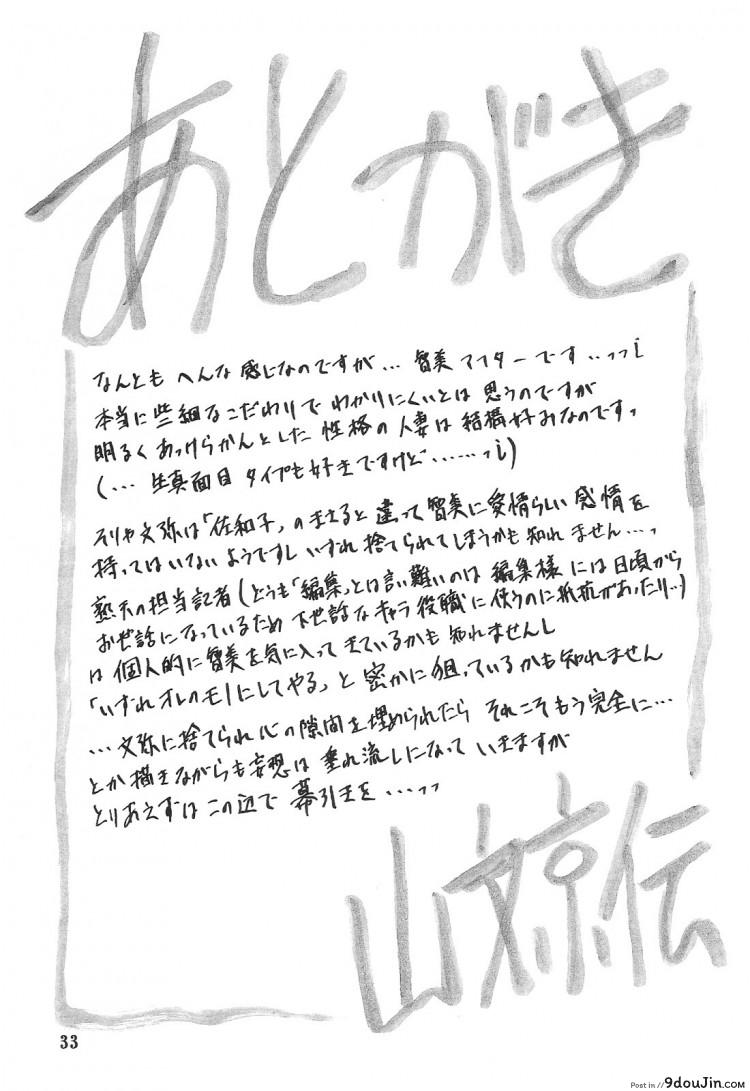 あとがき
なんとも へんな 感じなのですが… 智美 アフターです…っっ;
本当に些細なこだわりで わかりにくいとは 思うのですが
明るく あっけらかんとした 性格の 人妻は 結構好みなのですっ
(… 生真面目 タイプも好きですけど……っ;)
そりゃ 文弥は「佐和子」の ときと 違って 智美に愛情らしい 感情を
持ってはいないようですし いずれ 捨てられてしまうかも 知れ ません…っ
熟天の担当記者(どうも「編集」とは言い難いのは 編集様 には 日頃から
お世話になっているため 下世話な キャラ 役職に 使うのに抵抗があったり…)
は 個人的に 智美を気に入って きているかも 知れませんし
「いずれ オレのモノにしてやる」と 密かに 狙っているかも知れません
… 文弥に捨てられ 心の 隙間を埋められたら それこそ もう 完全に…
とか 描きながらも 妄想は 垂れ流しになって いきますが
とりあえずは この辺で 幕引きを …っっ
山文京伝
33
Post in // 9douJin.com